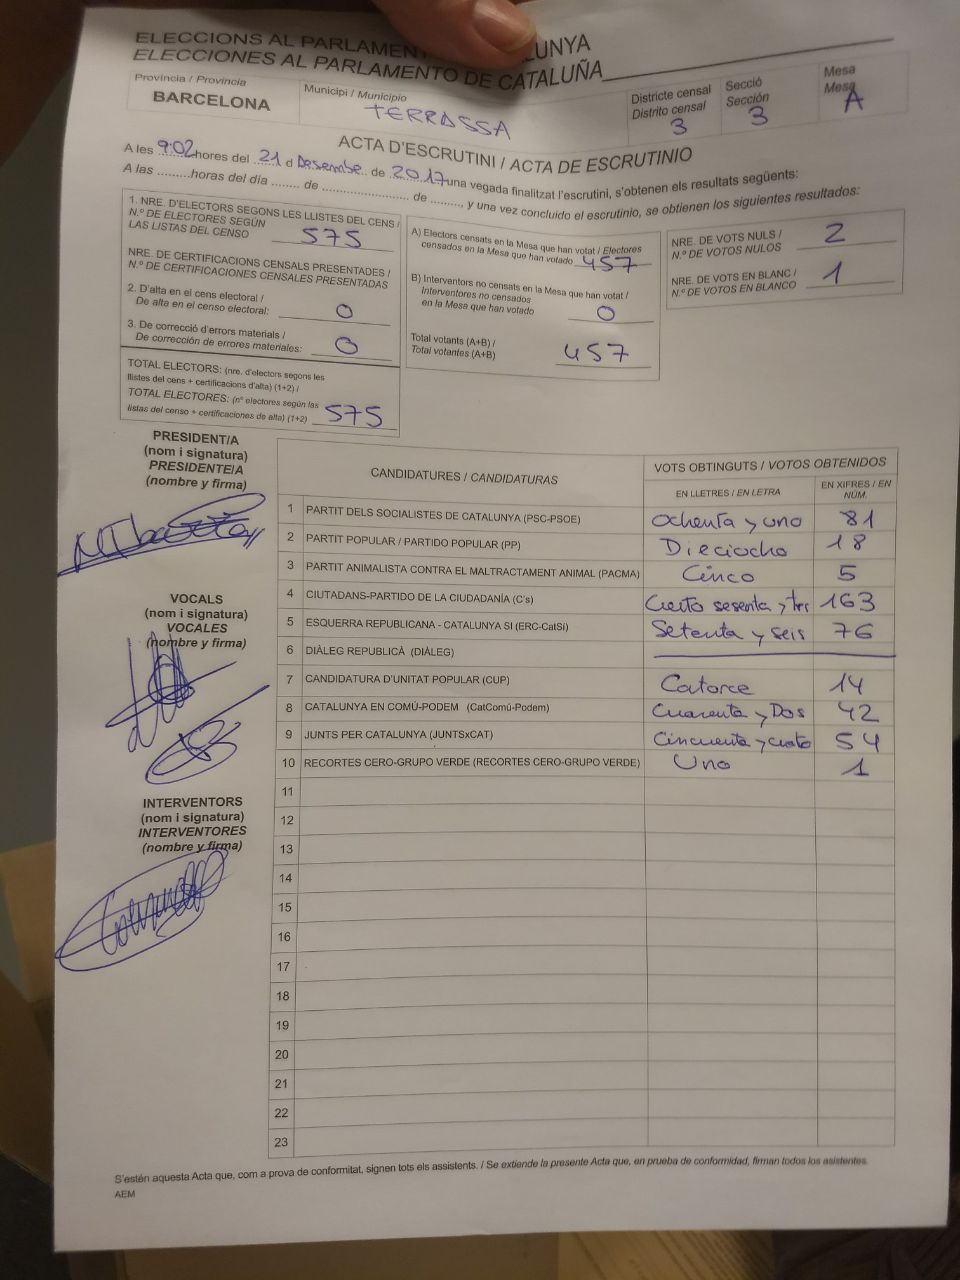 ELECCIONS AL PARLAMEN LUNYA
ELECCIONES AL PARLAMENTO DE CATALUÑA
Província / Provincia
BARCELONA
Municipi / Municipio
TERRASSA
Districte censal
Distrito censal
3
Secció
Sección
3
Mesa
Mesa
A
ACTA D'ESCRUTINI / ACTA DE ESCRUTINIO
A les 9:02 hores del 21 d Desembre de 2017 una vegada finalitzat l'escrutini, s'obtenen els resultats següents:
A las .........horas del día ........ de ......................... de ........., y una vez concluido el escrutinio, se obtienen los siguientes resultados:
1. NRE. D'ELECTORS SEGONS LES LLISTES DEL CENS /
N.º DE ELECTORES SEGÚN
LAS LISTAS DEL CENSO 575
NRE. DE CERTIFICACIONS CENSALS PRESENTADES /
N.º DE CERTIFICACIONES CENSALES PRESENTADAS
2. D'alta en el cens electoral /
De alta en el censo electoral: 0
3. De correcció d'errors materials /
De corrección de errores materiales: 0
TOTAL ELECTORS: (nre. d'electors segons les
llistes del cens + certificacions d'alta) (1+2) /
TOTAL ELECTORES: (nº electores según las
listas del censo + certificaciones de alta) (1+2) 575
A) Electors censats en la Mesa que han votat / Electores
censados en la Mesa que han votado 457
B) Interventors no censats en la Mesa que han votat /
Interventores no censados
en la Mesa que han votado 0
Total votants (A+B) /
Total votantes (A+B) 457
NRE. DE VOTS NULS /
N.º DE VOTOS NULOS 2
NRE. DE VOTS EN BLANC /
N.º DE VOTOS EN BLANCO 1
PRESIDENT/A
(nom i signatura)
PRESIDENTE/A
(nombre y firma)
VOCALS
(nom i signatura)
VOCALES
(nombre y firma)
INTERVENTORS
(nom i signatura)
INTERVENTORES
(nombre y firma)
CANDIDATURES / CANDIDATURAS
VOTS OBTINGUTS / VOTOS OBTENIDOS
EN LLETRES / EN LETRA
EN XIFRES / EN
NÚM.
1 PARTIT DELS SOCIALISTES DE CATALUNYA (PSC-PSOE) ochenta y uno 81
2 PARTIT POPULAR / PARTIDO POPULAR (PP) Dieciocho 18
3 PARTIT ANIMALISTA CONTRA EL MALTRACTAMENT ANIMAL (PACMA) Cinco 5
4 CIUTADANS-PARTIDO DE LA CIUDADANÍA (C's) Ciento sesenta y tres 163
5 ESQUERRA REPUBLICANA - CATALUNYA SI (ERC-CatSi) Setenta y seis 76
6 DIÀLEG REPUBLICÀ (DIÀLEG)
7 CANDIDATURA D'UNITAT POPULAR (CUP) Catorce 14
8 CATALUNYA EN COMÚ-PODEM (CatComú-Podem) Cuarenta y Dos 42
9 JUNTS PER CATALUNYA (JUNTSxCAT) Cincuenta y cuatro 54
10 RECORTES CERO-GRUPO VERDE (RECORTES CERO-GRUPO VERDE) Uno 1
11
12
13
14
15
16
17
18
19
20
21
22
23
S'estén aquesta Acta que, com a prova de conformitat, signen tots els assistents. / Se extiende la presente Acta que, en prueba de conformidad, firman todos los asistentes.
AEM